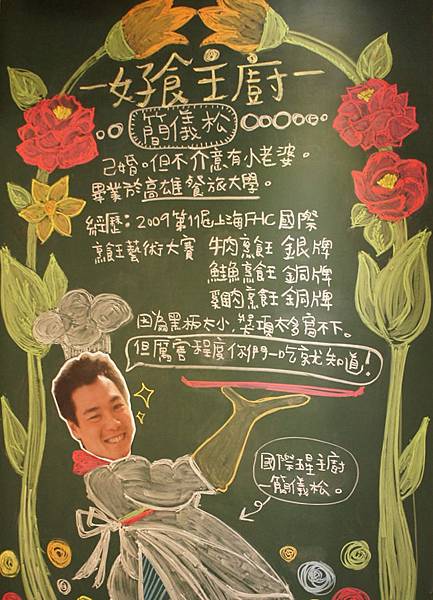 好食主廚
簡儀松
已婚。但不介意有小老婆。
畢業於高雄餐旅大學。
經歷：2009第11屆上海FHC國際
烹飪藝術大賽 牛肉烹飪 銀牌
鮭魚烹飪 銅牌
雞肉烹飪 銅牌
因為黑板太小，獎項太多寫不下。
但厲害程度你們一吃就知道！
國際五星主廚
—簡儀松。